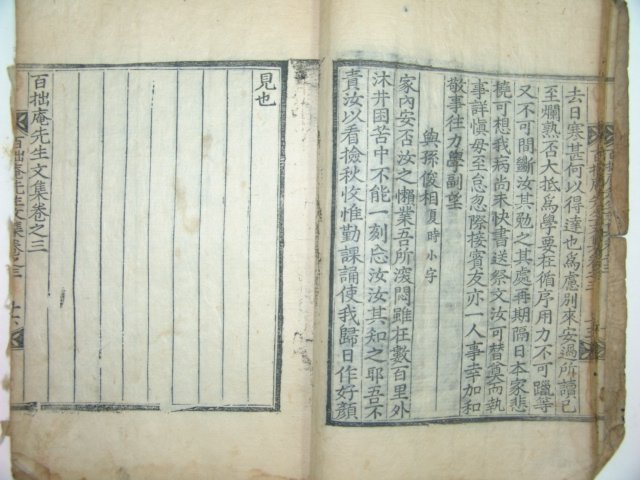 去日寒甚何以得達也爲慮別來安過所讀已
至爛熟否大抵爲學要在循序用力不可躐等
又不可間斷汝其勉之其處再期隔日本家悲
撓可想我病尚未快書送祭文汝可替奠而執
事詳愼毋至怠忽際接賓友亦一人事幸加和
敬事往力學副望
與孫儉相夏時小字
家內安否汝之懶業吾所深悶雖在數百里外
沐井困苦中不能一刻忘汝汝其知之耶吾不
責汝以看檢秋收惟勤課誦使我歸日作好顏
見也
百拙庵先生文集卷之三
百拙庵先生文集卷之三